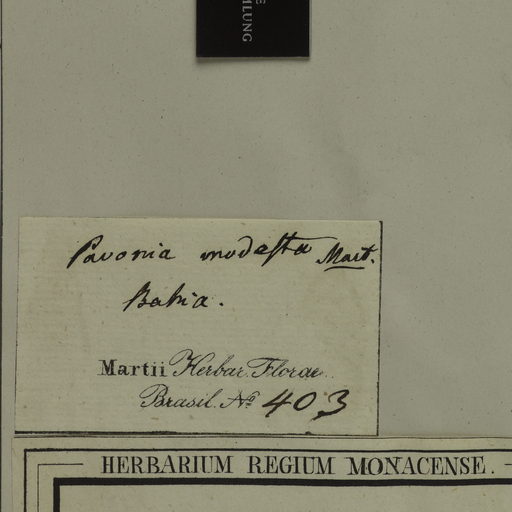 MLUNG
Pavonia modesta Mart.
Bahia.
Martii Herbar. Florae
Brasil. No 403
HERBARIUM REGIUM MONACENSE.